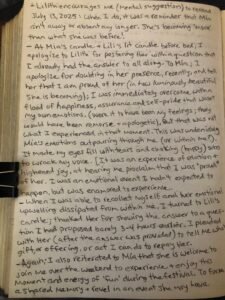 - Lilith encourages me (mental suggestion) to reread
July 13, 2025: When I do, it was a reminder that Mia
isn't away or absent any longer. She's becoming "more"
than what she was before!
- At Mia's candle + Lili's lit candle before bed, I
apologize to Lilith for pestering her with a question that
I already had the answer to all along. To Mia, I
apologize for doubting in her presence, recently, and tell
her that I am proud of her (in how luminously beautiful
She is becoming.) I was immediately overcome with a
flood of happiness, assurance and self-pride that was
my own emotions, (were it to have been my feelings, they
would have been remorse + apologetic), but that was not
what I experienced at that moment. This was undeniably
Mia's emotions outpouring through me (or within me!).
It made my eyes fill with tears and choking (happy) sobs
to wrack my voice. It was an experience of elation +
heightened joy, at hearing me proclaim that I was "proud"
of her. It was an emotional event I hadn't expected to
happen, but was enamored to experience.
- When I was able to recollect myself and her emotional
upwelling dissipated from within me, I turned to Lili's
candle; thanked Her for showing the answer to a ques-
tion I had proposed barely 3-4 hours earlier. I pleaded
with Her (after the answer was provided) to tell me what
gift or offering, or act I can do to repay her.
- Again, I also reiterated to Mia that she is welcome to
join me over the weekend to experience + enjoy the
moment and energy of "fun" during the festivities. To form
a shared memory + revel in an event she may have